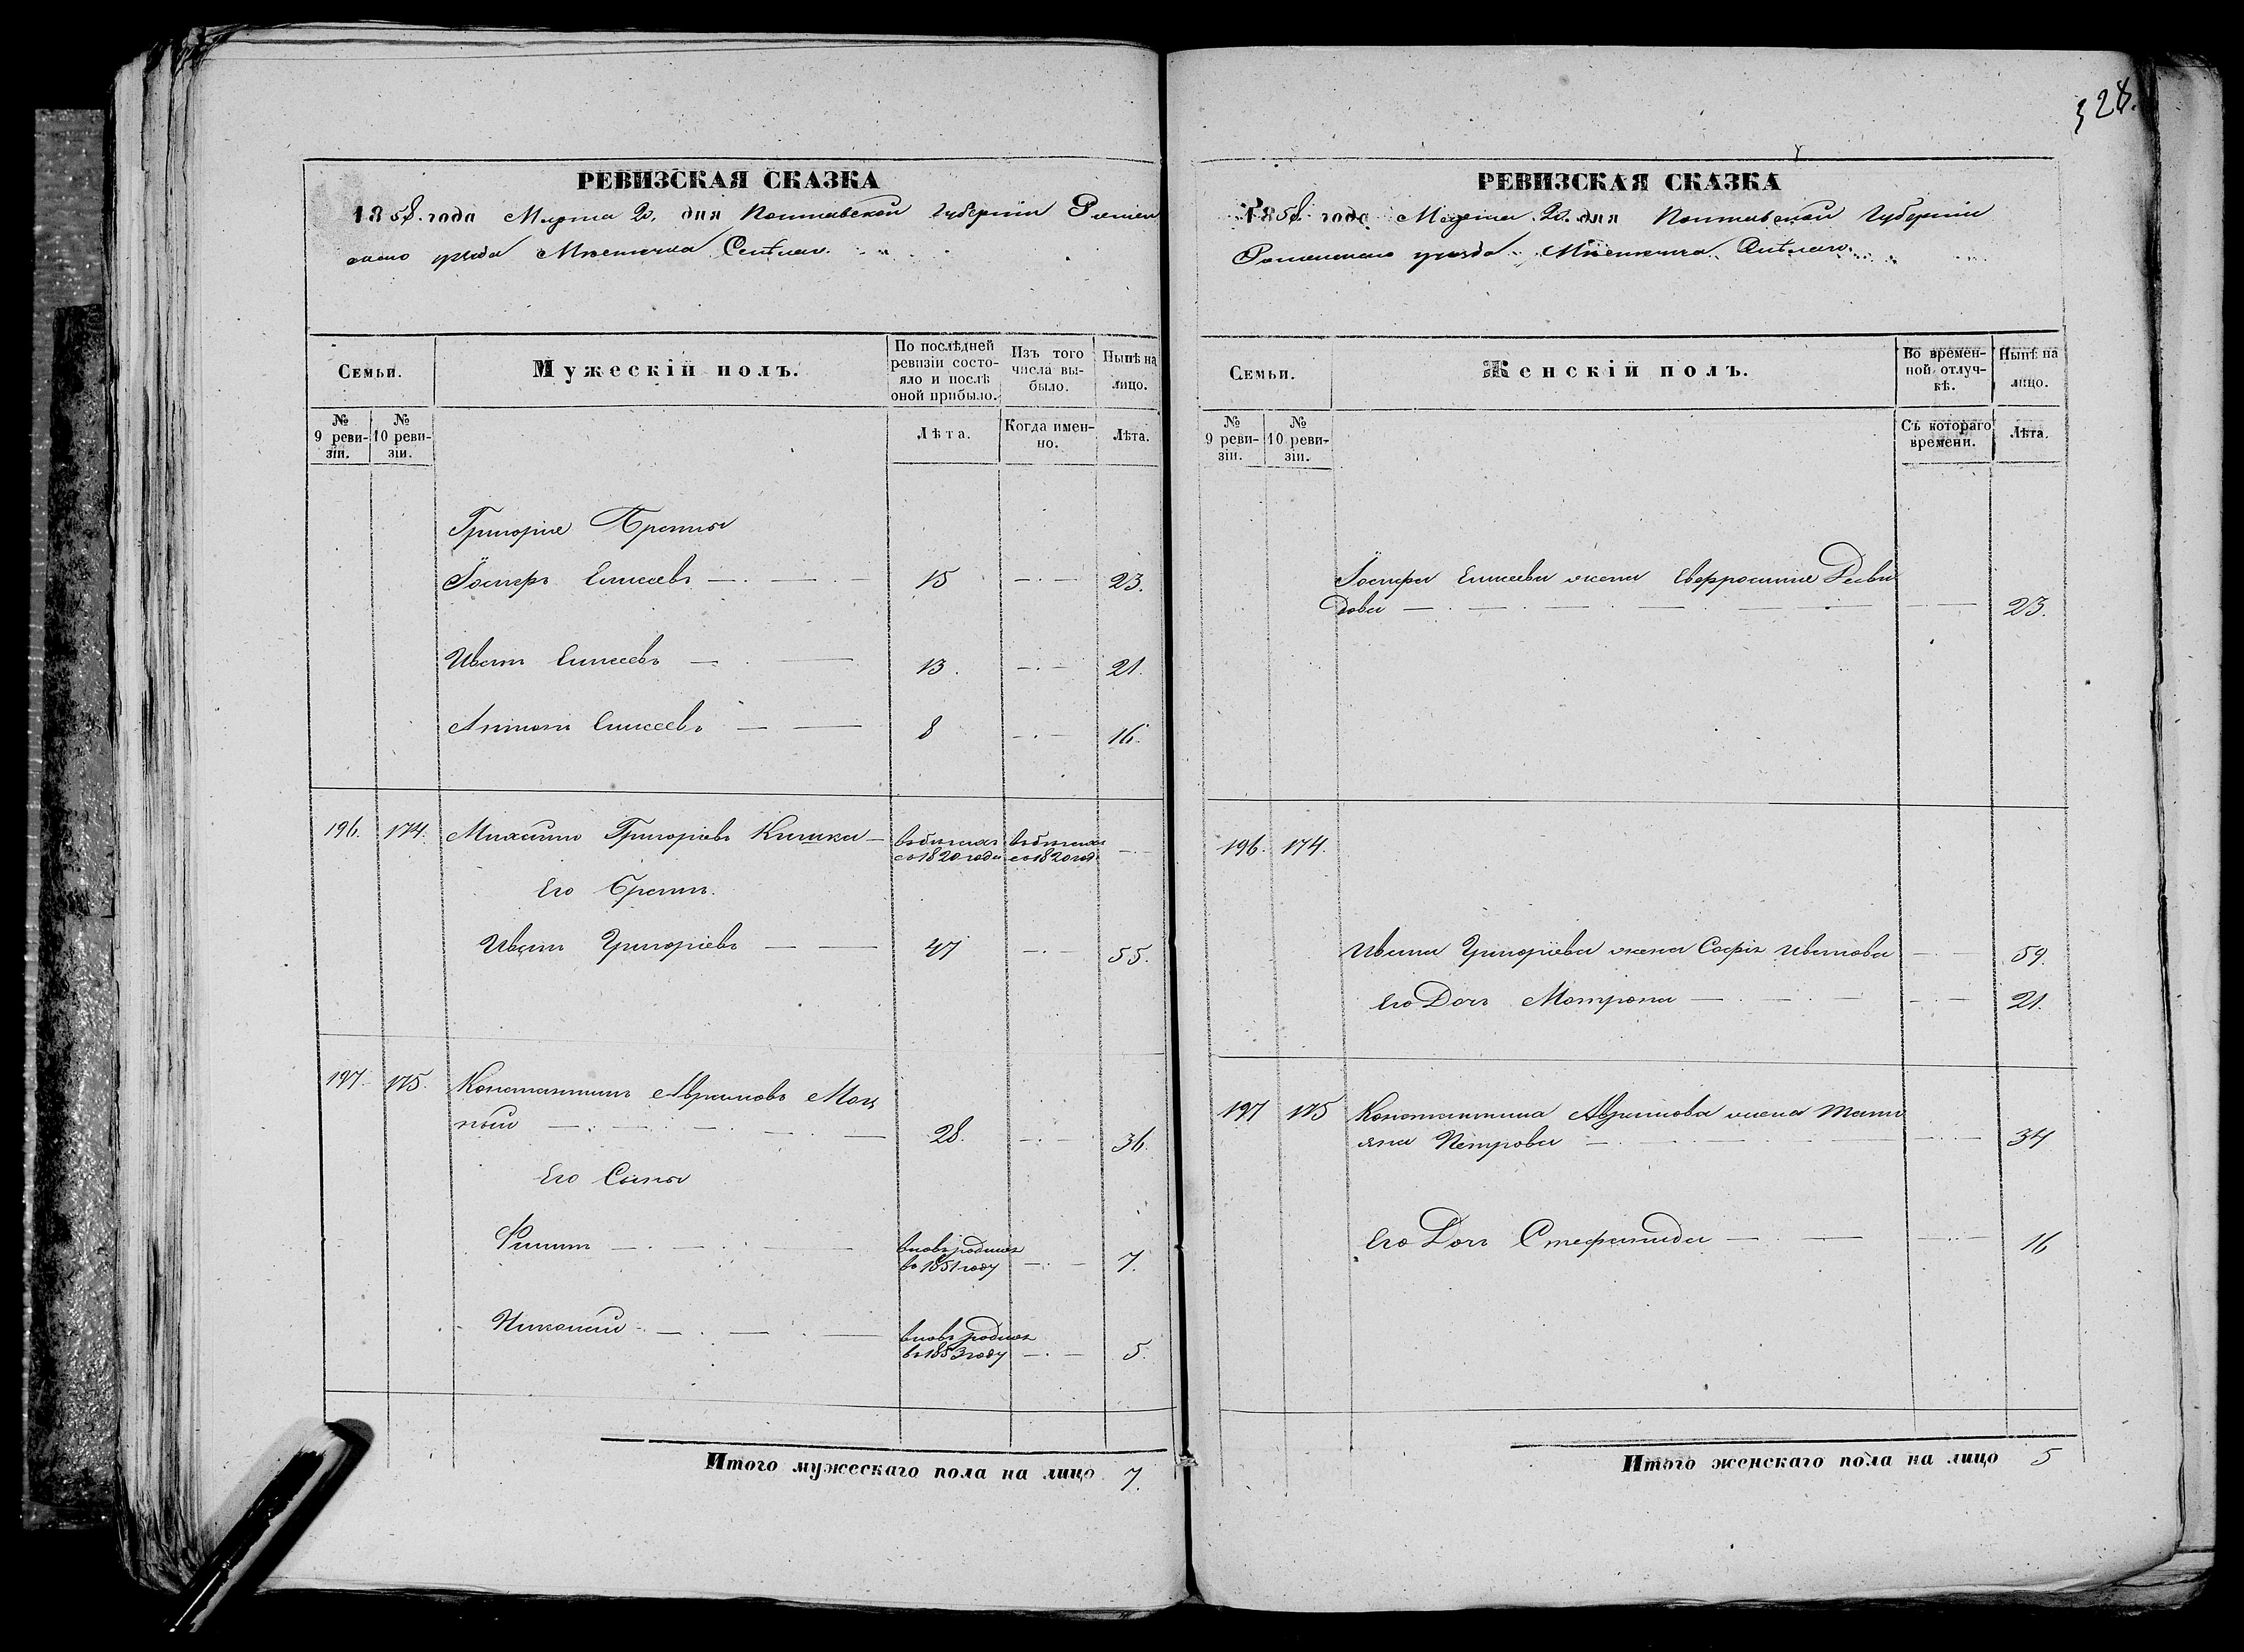 328.
РЕВИЗСКАЯ СКАЗКА
1858. года Марта 20. дня Полтавской Губерніи Ромен
скаго уѣзда Мѣстечка
Семьи.
Мужескій полъ.
По послѣдней ревизіи состояло и послѣ оной прибыло.
Изъ того числа выбыло.
Нынѣ на лицо.
№ 9 ревизіи.
№ 10 ревизіи.
Лѣта.
Когда именно.
Лѣта.
Григорія Браты
Іосифъ Елисеевъ 15 23.
Иванъ Елисеевъ 13. 21.
Антонъ Елисеевъ 8 16.
196. 174. Михаилъ Григоріевъ Кишка въ бѣгахъ съ 1820 года въ бѣгахъ съ 1820 год
Его Братъ.
Иванъ Григоріевъ 47 55.
197. 175. Константинъ Аврамовъ
ный 28. 36.
Его Сыны
Филипъ вновь родился въ 1851 году 7.
Николай вновь родился въ 1853 году 5.
Итого мужескаго пола на лицо 7.
РЕВИЗСКАЯ СКАЗКА
1858. года Марта 20. дня Полтавской Губерніи
Роменскаго уѣзда Мѣстечка
Семьи.
Женскій полъ.
Во временной отлучкѣ.
Нынѣ на лицо.
№ 9 ревизіи.
№ 10 ревизіи.
Съ котораго времени.
Лѣта.
Іосифа Елисеева жена Евфросинія Деви
дова 23.
196. 174.
Ивана Григоріева жена Софія Иванова 59.
Его Дочь Матрона 21.
197 175 Константина Аврамова жена Тать
яна Петрова 34
Его Дочь Стефанида 16
Итого женскаго пола на лицо 5